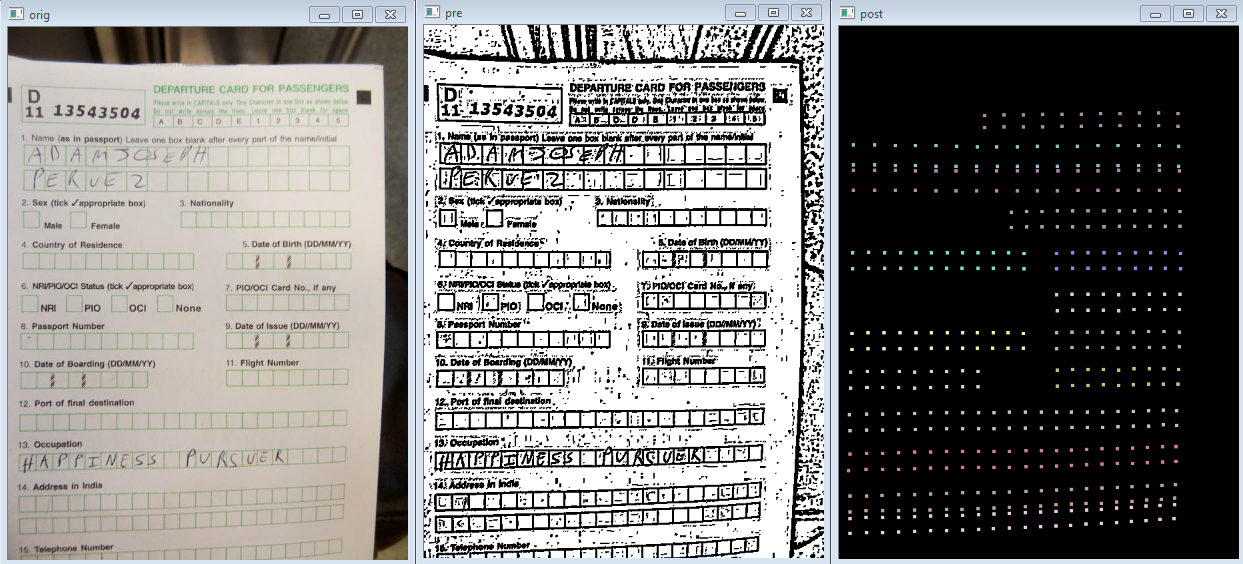 orig
D
11 13543504
DEPARTURE CARD FOR PASSENGERS
Please write in CAPITALS only. One Character in one box as shown below
Do not write across the lines. Leave one box blank for space
A B C D E 1 2 3 4 5
1. Name (as in passport) Leave one box blank after every part of the name/initial
ADAMJOSEPH
PERVEZ
2. Sex (tick ✓appropriate box)
3. Nationality
Male Female
4. Country of Residence
5. Date of Birth (DD/MM/YY)
6. NRI/PIO/OCI Status (tick ✓appropriate box)
7. PIO/OCI Card No., if any
NRI PIO OCI None
8. Passport Number
9. Date of Issue (DD/MM/YY)
10. Date of Boarding (DD/MM/YY)
11. Flight Number
12. Port of final destination
13. Occupation
HAPPINESS PURSUER
14. Address in India
15. Telephone Number
pre
D
11 13543504
DEPARTURE CARD FOR PASSENGERS
1. Name (as in passport) Leave one box blank after every part of the name/initial
ADAMJOSEPH
PERVEZ
2. Sex (tick ✓appropriate box)
3. Nationality
Male Female
4. Country of Residence
5. Date of Birth (DD/MM/YY)
6. NRI/PIO/OCI Status (tick ✓appropriate box)
7. PIO/OCI Card No., if any
NRI PIO OCI None
8. Passport Number
9. Date of Issue (DD/MM/YY)
10. Date of Boarding (DD/MM/YY)
11. Flight Number
12. Port of final destination
13. Occupation
HAPPINESS PURSUER
14. Address in India
15. Telephone Number
post